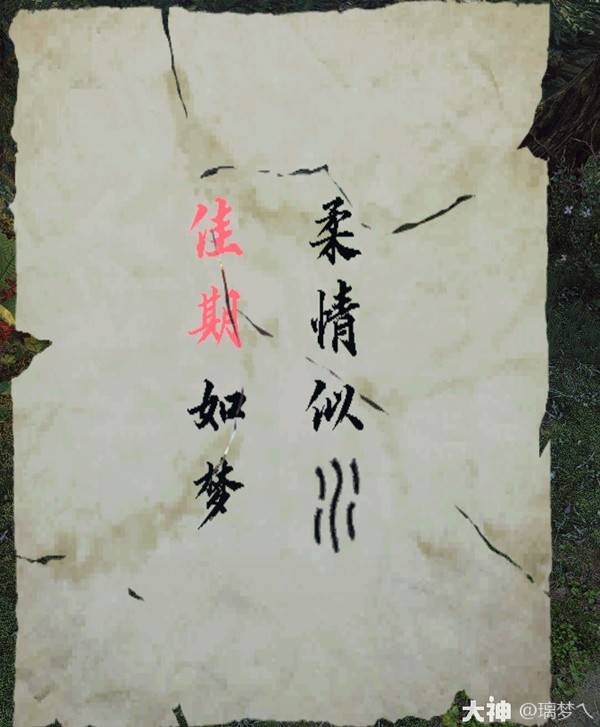 柔情似水
佳期如梦
大神 @璃梦へ